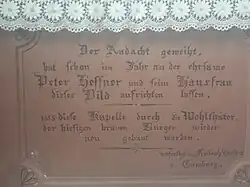 Der Andacht geweiht,
hat schon im Jahr der ehrsame
Peter Heffner und seine Hausfrau
dieses Bild aufrichten lassen,
und diese Kapelle durch die Wohlthäter
der hiesigen braven wieder
neu gebaut worden.